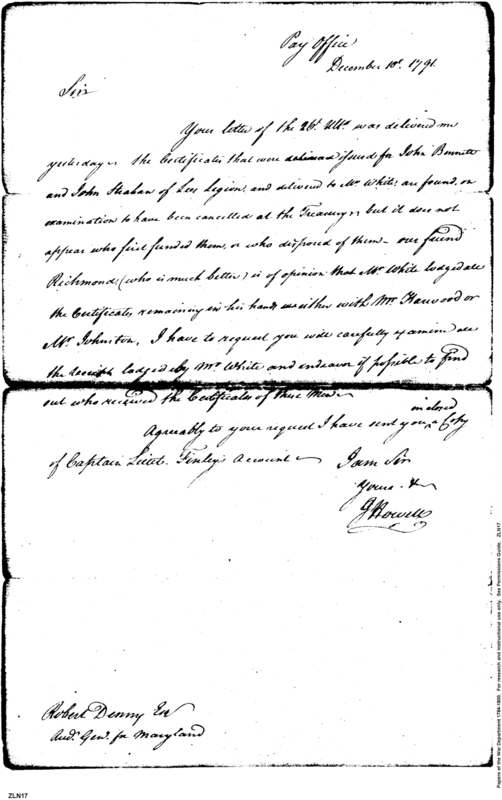 Pay Office
December 10th. 1791.
Sir
Your letter of the 26th. Ulto. was delivered me
yesterday the Certificates that were issued for John Bennett
and John Strahan of Lees Legion, and delivered to Mr. White; are found, on
examination to have been cancelled at the Treasury, but it does not
appear who first funded them, or who disposed of them — our friend
Richmond, (who is much better) is of opinion that Mr. White lodged all
the Certificates remaining in his hands either with Mr. Harwood or
Mr. Johnston, I have to request you will carefully examine all
the receipts lodged by Mr. White and endeavor if possible to find
out who received the Certificates of these Men
Agreeably to your request I have sent you inclosed Copy
of Captain Lieut. Finley's Account
I am Sir
Yours &
J Howell
Robert Denny Esr
Audr. Genl. for Maryland
ZLN17
Papers of the War Department 1784-1800. For research and instructional use only. See Permissions Guide. ZLN17